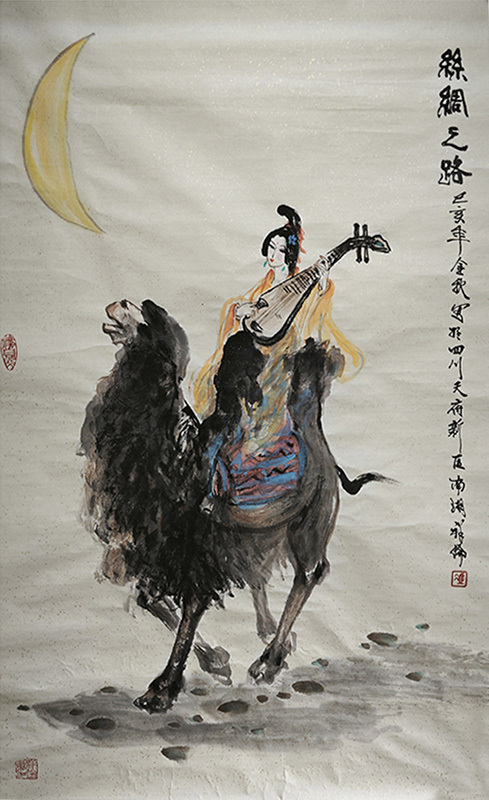 絲綢之路
己亥年金秋寫於四川天府新區南湖